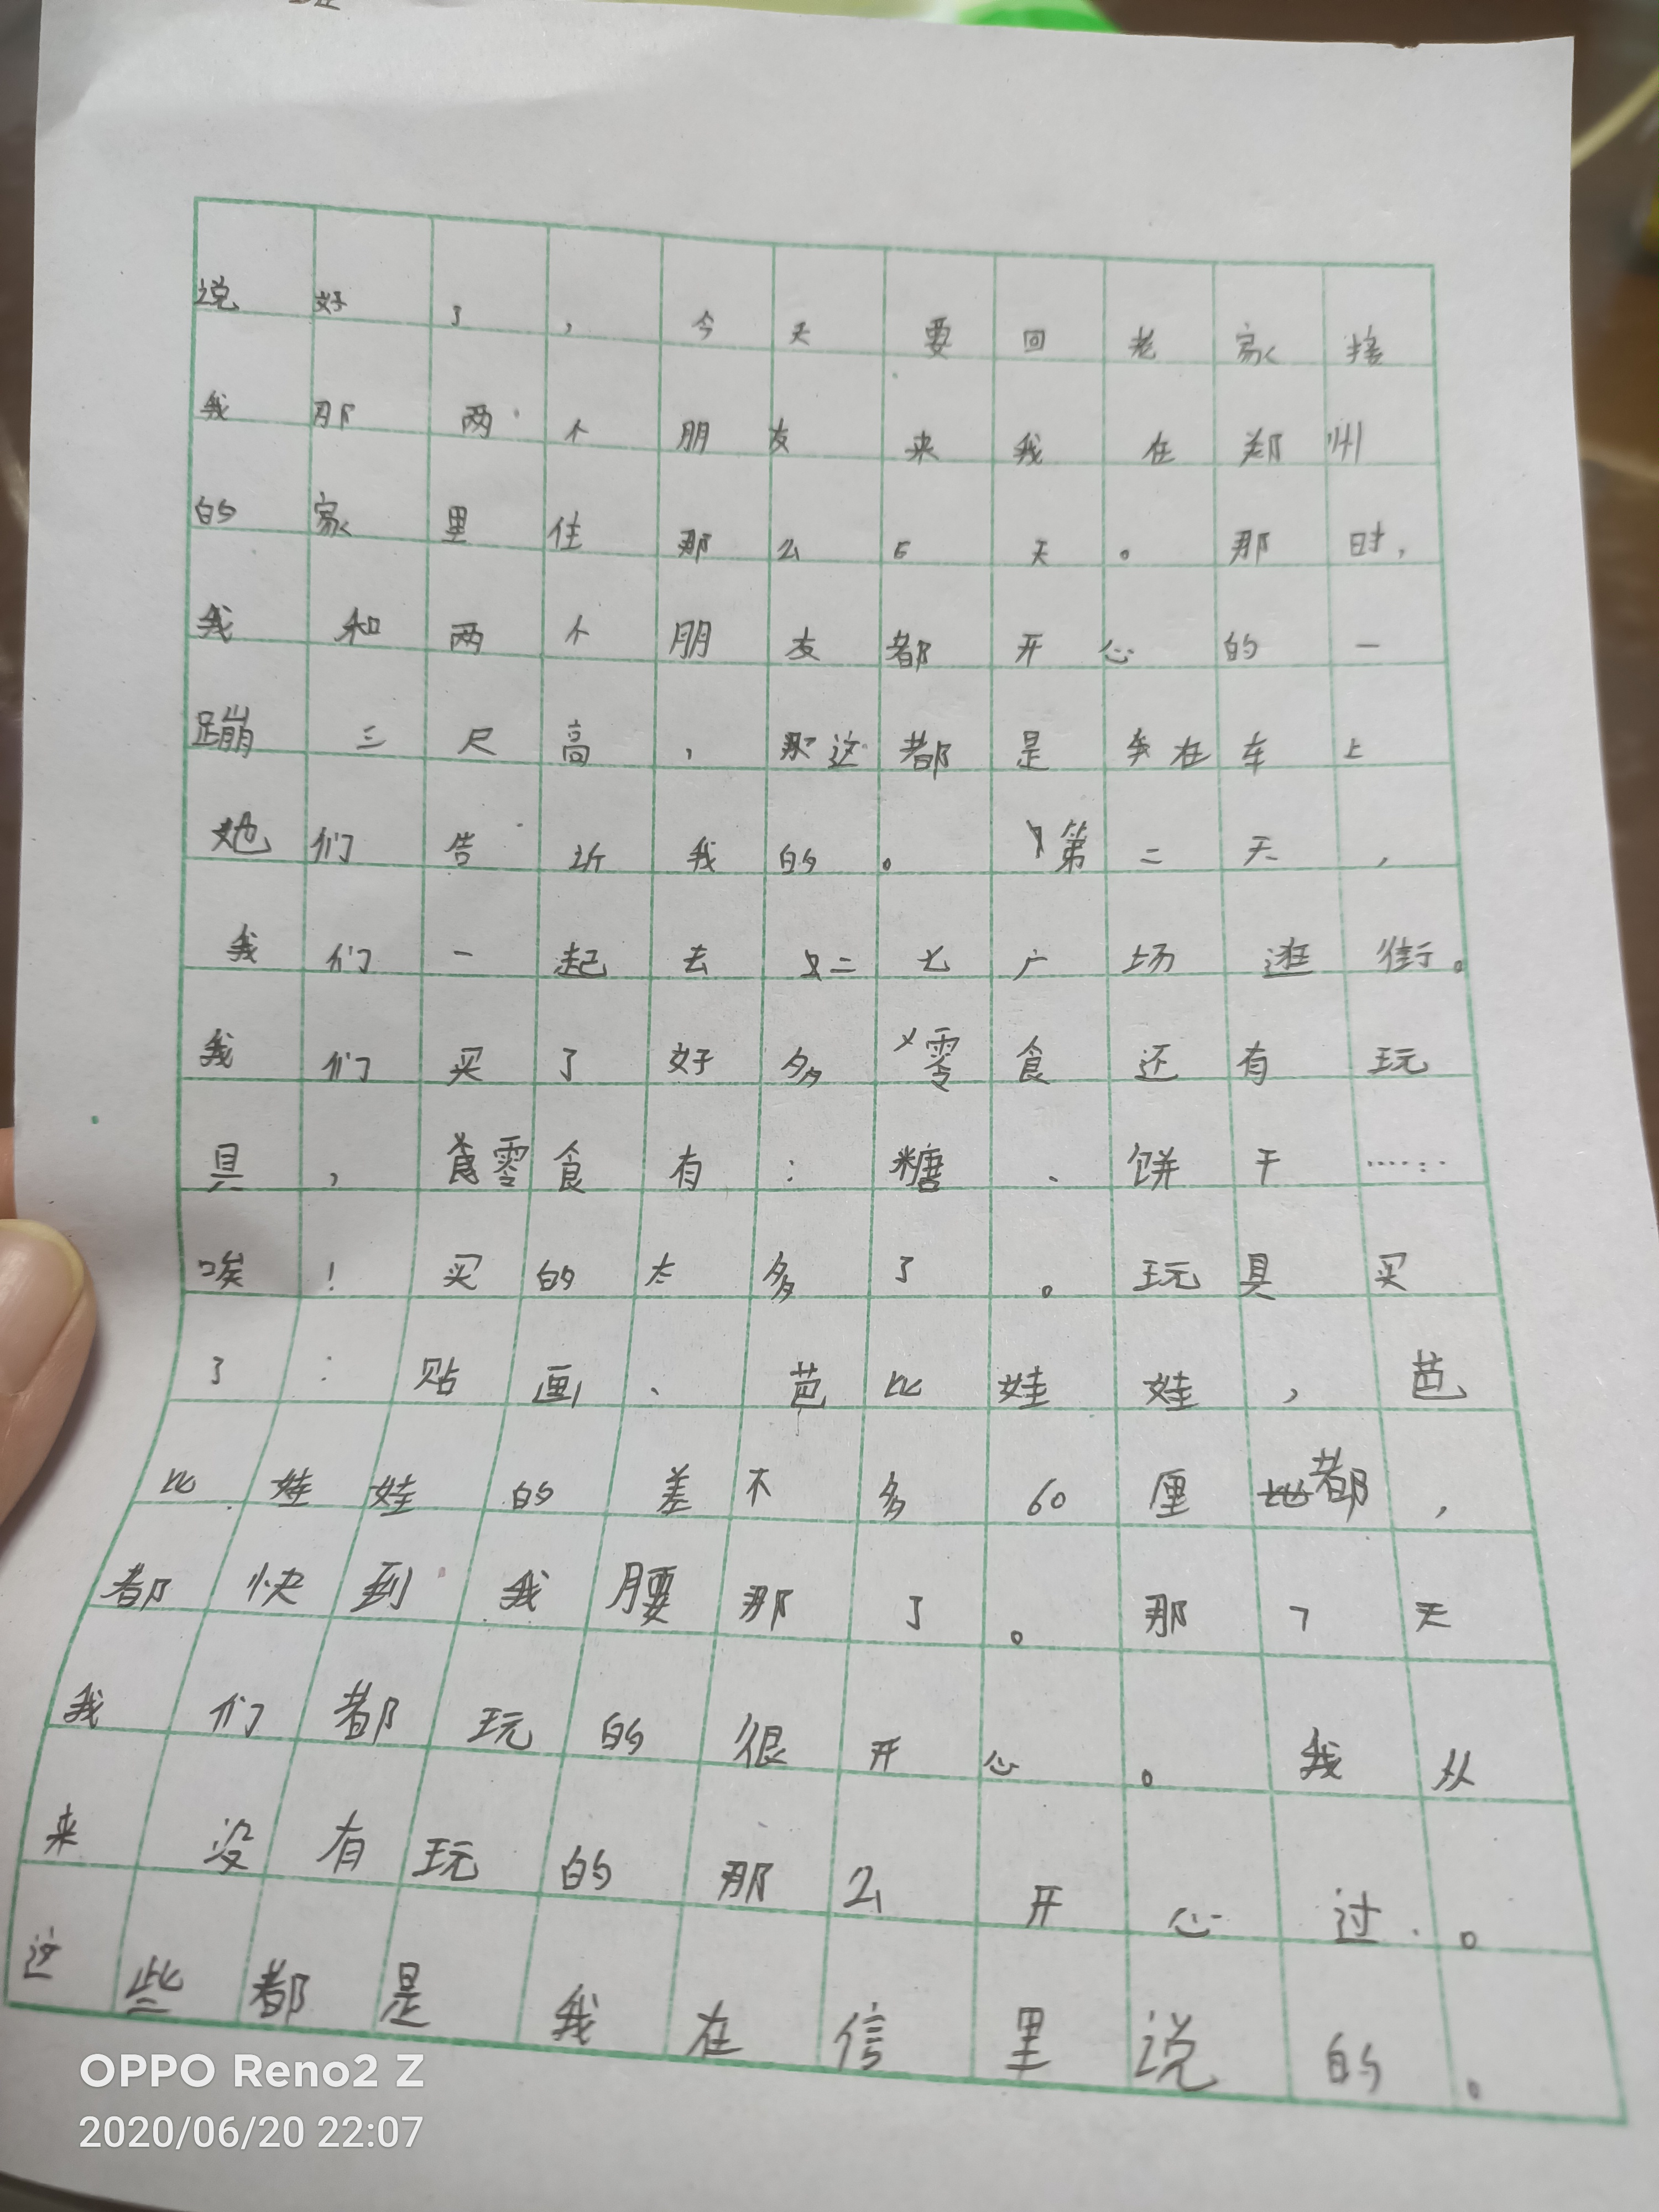 说好了，今天要回老家接
我那两个朋友来我在郑州
的家里住那么6天。那时，
我和两个朋友都开心的一
蹦三尺高，这都是在车上
她们告诉我的。第二天，
我们一起去二七广场逛街。
我们买了好多零食还有玩
具，零食有：糖、饼干……
唉！买的太多了。玩具买
了：贴画、芭比娃娃，芭
比娃娃的差不多60厘都，
都快到我腰那了。那7天
我们都玩的很开心。我从
来没有玩的那么开心过。
这些都是我在信里说的。
OPPO Reno2 Z
2020/06/20 22:07